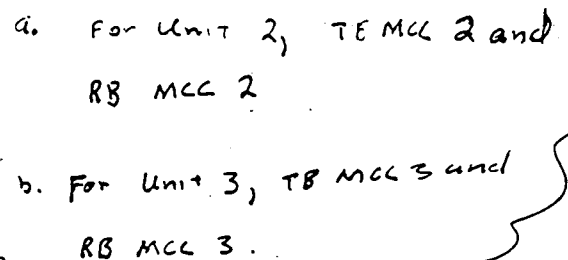 a. For Unit 2, TE MCC 2 and
RB MCC 2
b. For Unit 3, TB MCC 3 and
RB MCC 3.